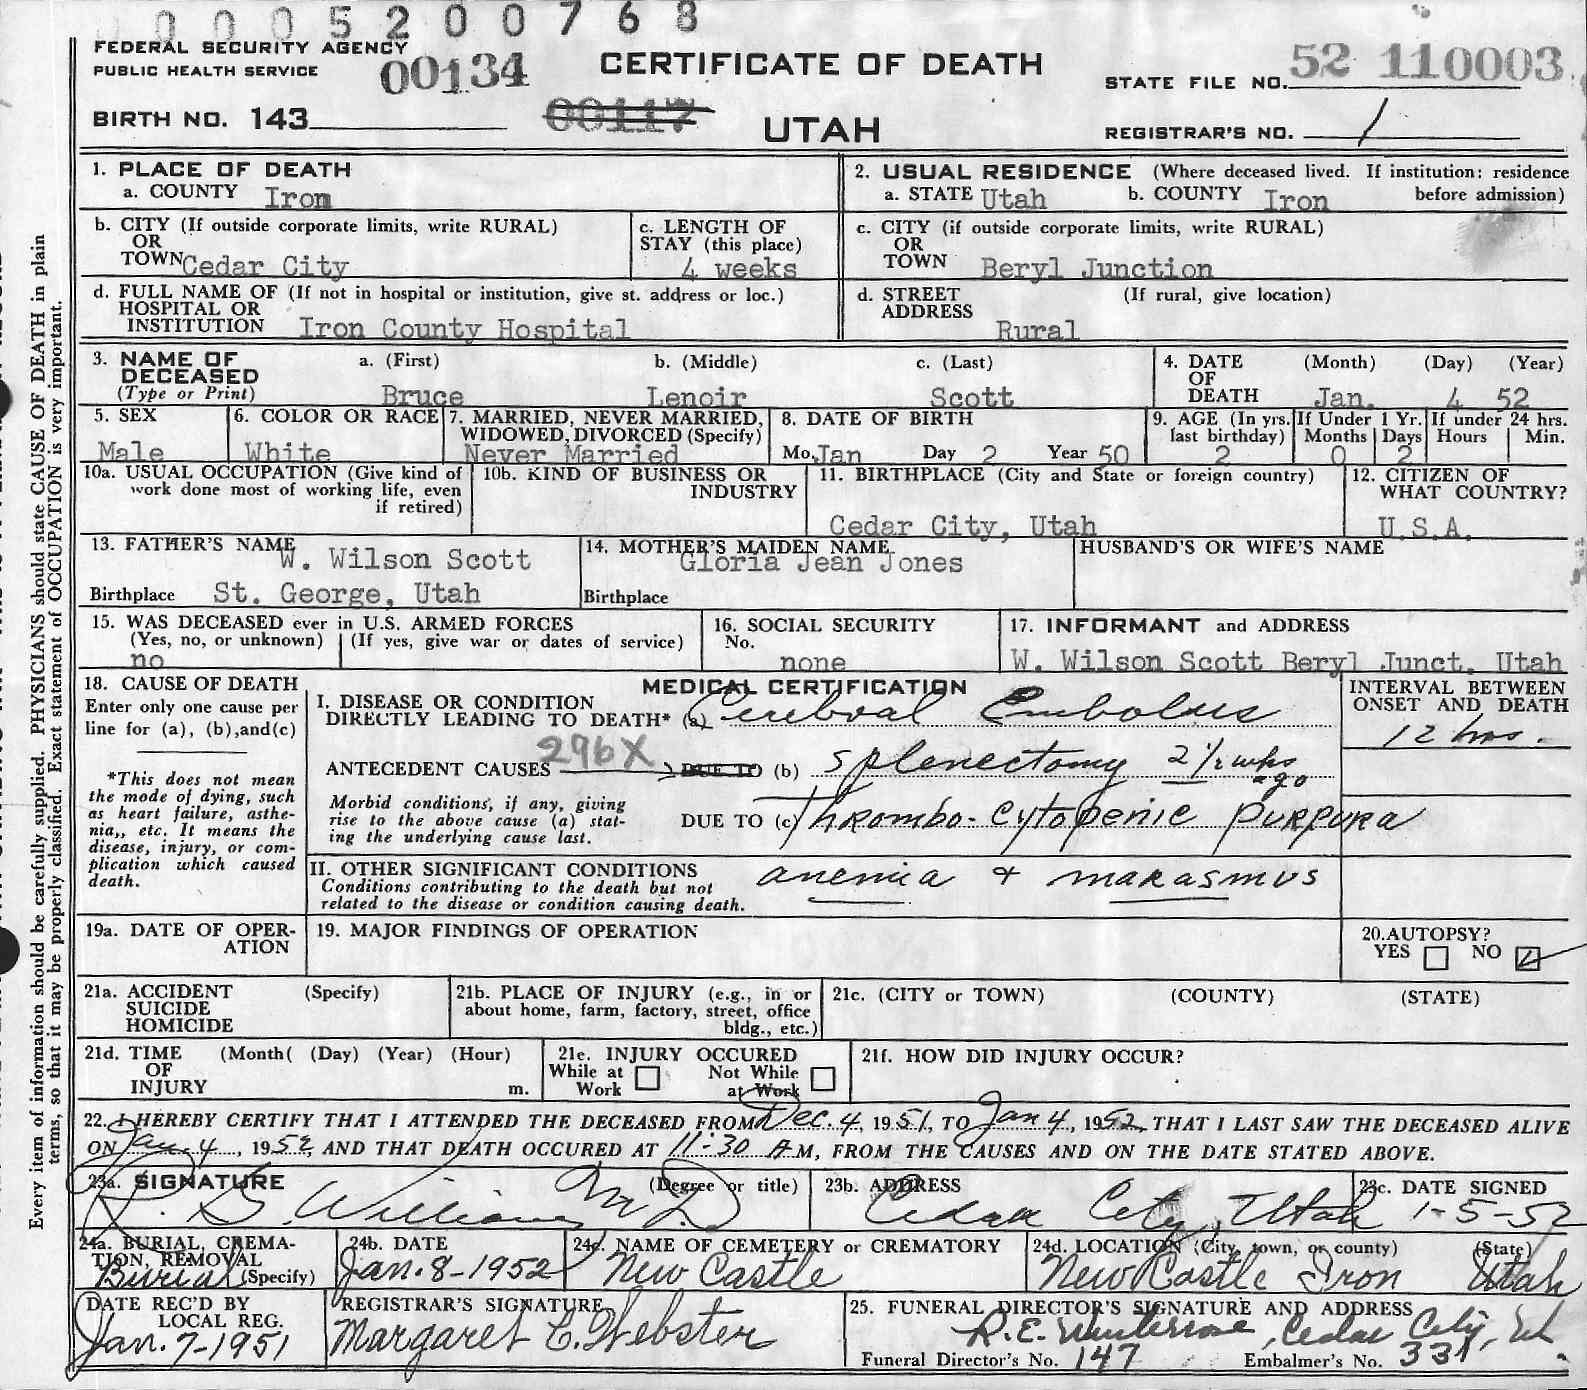 0005200768
FEDERAL SECURITY AGENCY
PUBLIC HEALTH SERVICE
00134
CERTIFICATE OF DEATH
STATE FILE NO. 52 110003
BIRTH NO. 143
00117
UTAH
REGISTRAR'S NO. 1
Every item of information should be carefully supplied. PHYSICIANS should state CAUSE OF DEATH in plain
terms, so that it may be properly classified. Exact statement of OCCUPATION is very important.
1. PLACE OF DEATH
a. COUNTY Iron
2. USUAL RESIDENCE (Where deceased lived. If institution: residence
a. STATE Utah b. COUNTY Iron before admission)
b. CITY (If outside corporate limits, write RURAL)
OR
TOWN Cedar City
c. LENGTH OF
STAY (this place)
4 weeks
c. CITY (if outside corporate limits, write RURAL)
OR
TOWN Beryl Junction
d. FULL NAME OF (If not in hospital or institution, give st. address or loc.)
HOSPITAL OR
INSTITUTION Iron County Hospital
d. STREET (If rural, give location)
ADDRESS
Rural
3. NAME OF a. (First) b. (Middle) c. (Last)
DECEASED
(Type or Print) Bruce Lenoir Scott
4. DATE (Month) (Day) (Year)
OF
DEATH Jan. 4 52
5. SEX
Male
6. COLOR OR RACE
White
7. MARRIED, NEVER MARRIED,
WIDOWED, DIVORCED (Specify)
Never Married
8. DATE OF BIRTH
Mo. Jan Day 2 Year 50
9. AGE (In yrs.
last birthday)
2
If Under 1 Yr.
Months Days
0 2
If under 24 hrs.
Hours Min.
10a. USUAL OCCUPATION (Give kind of
work done most of working life, even
if retired)
10b. KIND OF BUSINESS OR
INDUSTRY
11. BIRTHPLACE (City and State or foreign country)
Cedar City, Utah
12. CITIZEN OF
WHAT COUNTRY?
U.S.A.
13. FATHER'S NAME
W. Wilson Scott
Birthplace St. George, Utah
14. MOTHER'S MAIDEN NAME
Gloria Jean Jones
Birthplace
HUSBAND'S OR WIFE'S NAME
15. WAS DECEASED ever in U.S. ARMED FORCES
(Yes, no, or unknown) (If yes, give war or dates of service)
no
16. SOCIAL SECURITY
No.
none
17. INFORMANT and ADDRESS
W. Wilson Scott Beryl Junct. Utah
18. CAUSE OF DEATH
Enter only one cause per
line for (a), (b),and(c)
*This does not mean
the mode of dying, such
as heart failure, asthe-
nia,, etc. It means the
disease, injury, or com-
plication which caused
death.
MEDICAL CERTIFICATION
I. DISEASE OR CONDITION
DIRECTLY LEADING TO DEATH* (a) Cerebral Embolus
INTERVAL BETWEEN
ONSET AND DEATH
12 hrs.
296X
ANTECEDENT CAUSES DUE TO (b) Splenectomy 2 1/2 wks
ago
Morbid conditions, if any, giving
rise to the above cause (a) stat-
ing the underlying cause last.
DUE TO (c) Thrombo-cytopenic purpura
II. OTHER SIGNIFICANT CONDITIONS
Conditions contributing to the death but not
related to the disease or condition causing death.
anemia + marasmus
19a. DATE OF OPER-
ATION
19. MAJOR FINDINGS OF OPERATION
20. AUTOPSY?
YES NO
21a. ACCIDENT (Specify)
SUICIDE
HOMICIDE
21b. PLACE OF INJURY (e.g., in or
about home, farm, factory, street, office
bldg., etc.)
21c. (CITY or TOWN) (COUNTY) (STATE)
21d. TIME (Month( (Day) (Year) (Hour)
OF
INJURY m.
21e. INJURY OCCURED
While at Not While
Work at Work
21f. HOW DID INJURY OCCUR?
22. I HEREBY CERTIFY THAT I ATTENDED THE DECEASED FROM Dec. 4, 1951, TO Jan 4, 1952, THAT I LAST SAW THE DECEASED ALIVE
ON Jan. 4, 1952, AND THAT DEATH OCCURED AT 11:30 A M, FROM THE CAUSES AND ON THE DATE STATED ABOVE.
23a. SIGNATURE (Degree or title)
R. G. Williams M.D.
23b. ADDRESS
Cedar City, Utah
23c. DATE SIGNED
1-5-52
24a. BURIAL, CREMA-
TION, REMOVAL
Burial (Specify)
24b. DATE
Jan. 8-1952
24c. NAME OF CEMETERY or CREMATORY
New Castle
24d. LOCATION (City, town, or county) (State)
New Castle Iron Utah
DATE REC'D BY
LOCAL REG.
Jan. 7-1951
REGISTRAR'S SIGNATURE
Margaret C. Webster
25. FUNERAL DIRECTOR'S SIGNATURE AND ADDRESS
R.E. Cedar City, Ut
Funeral Director's No. 147 Embalmer's No. 331